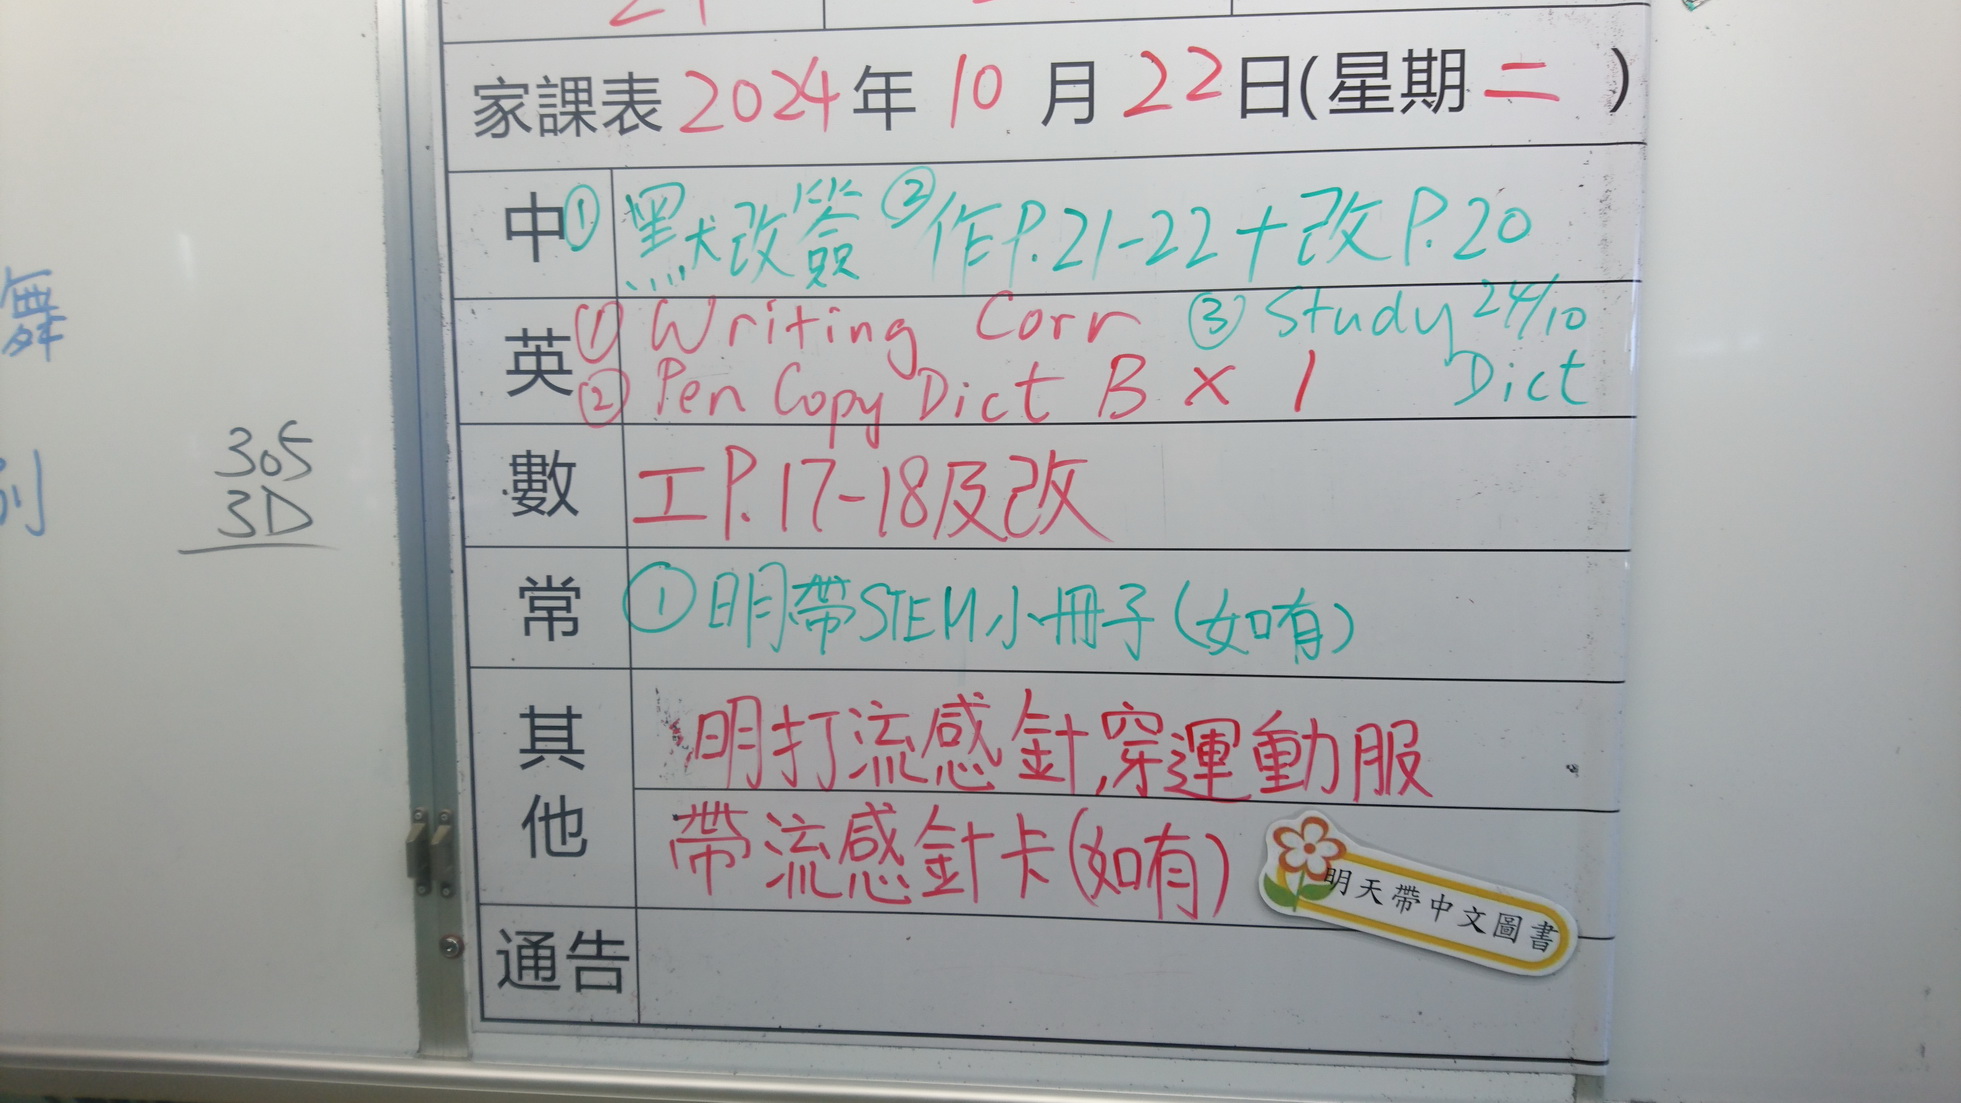 家課表 2024年 10 月 22日(星期二 )
中 ① 默改簽 ② 作P.21-22+改P.20
英 ① Writing Corr ③ Study 24/10 Dict
② Pen Copy Dict B × 1
數 工P.17-18及改
常 ① 明帶STEM小冊子(如有)
其他 明打流感針,穿運動服
帶流感針卡(如有)
明天帶中文圖書
通告
舞
別
305
3D